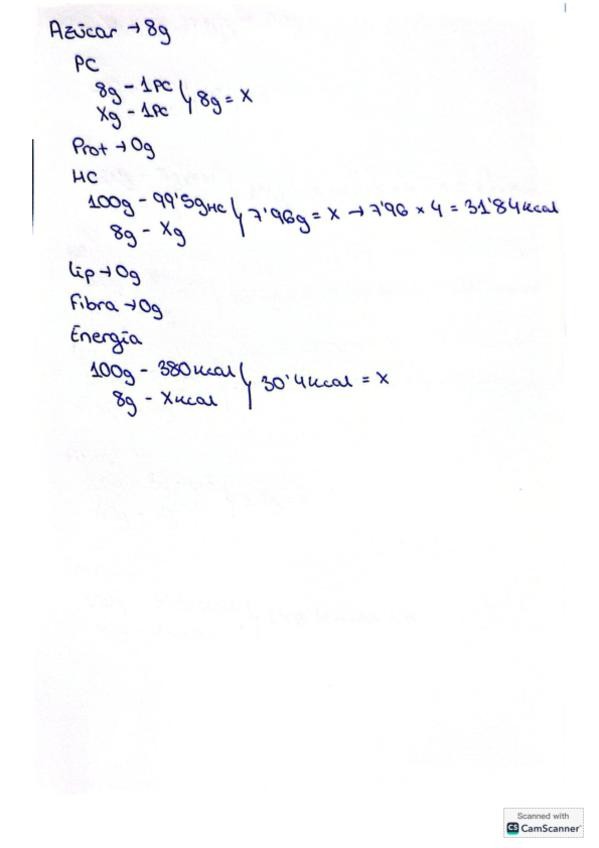 Azúcar → 8g
PC
8g - 1PC
Xg - 1PC
8g = X
Prot → 0g
HC
100g - 99'5g HC
8g - Xg
7'96g = X → 7'96 × 4 = 31'84 kcal
Lip → 0g
Fibra → 0g
Energía
100g - 380 kcal
8g - X kcal
30'4 kcal = X
Scanned with
CS CamScanner